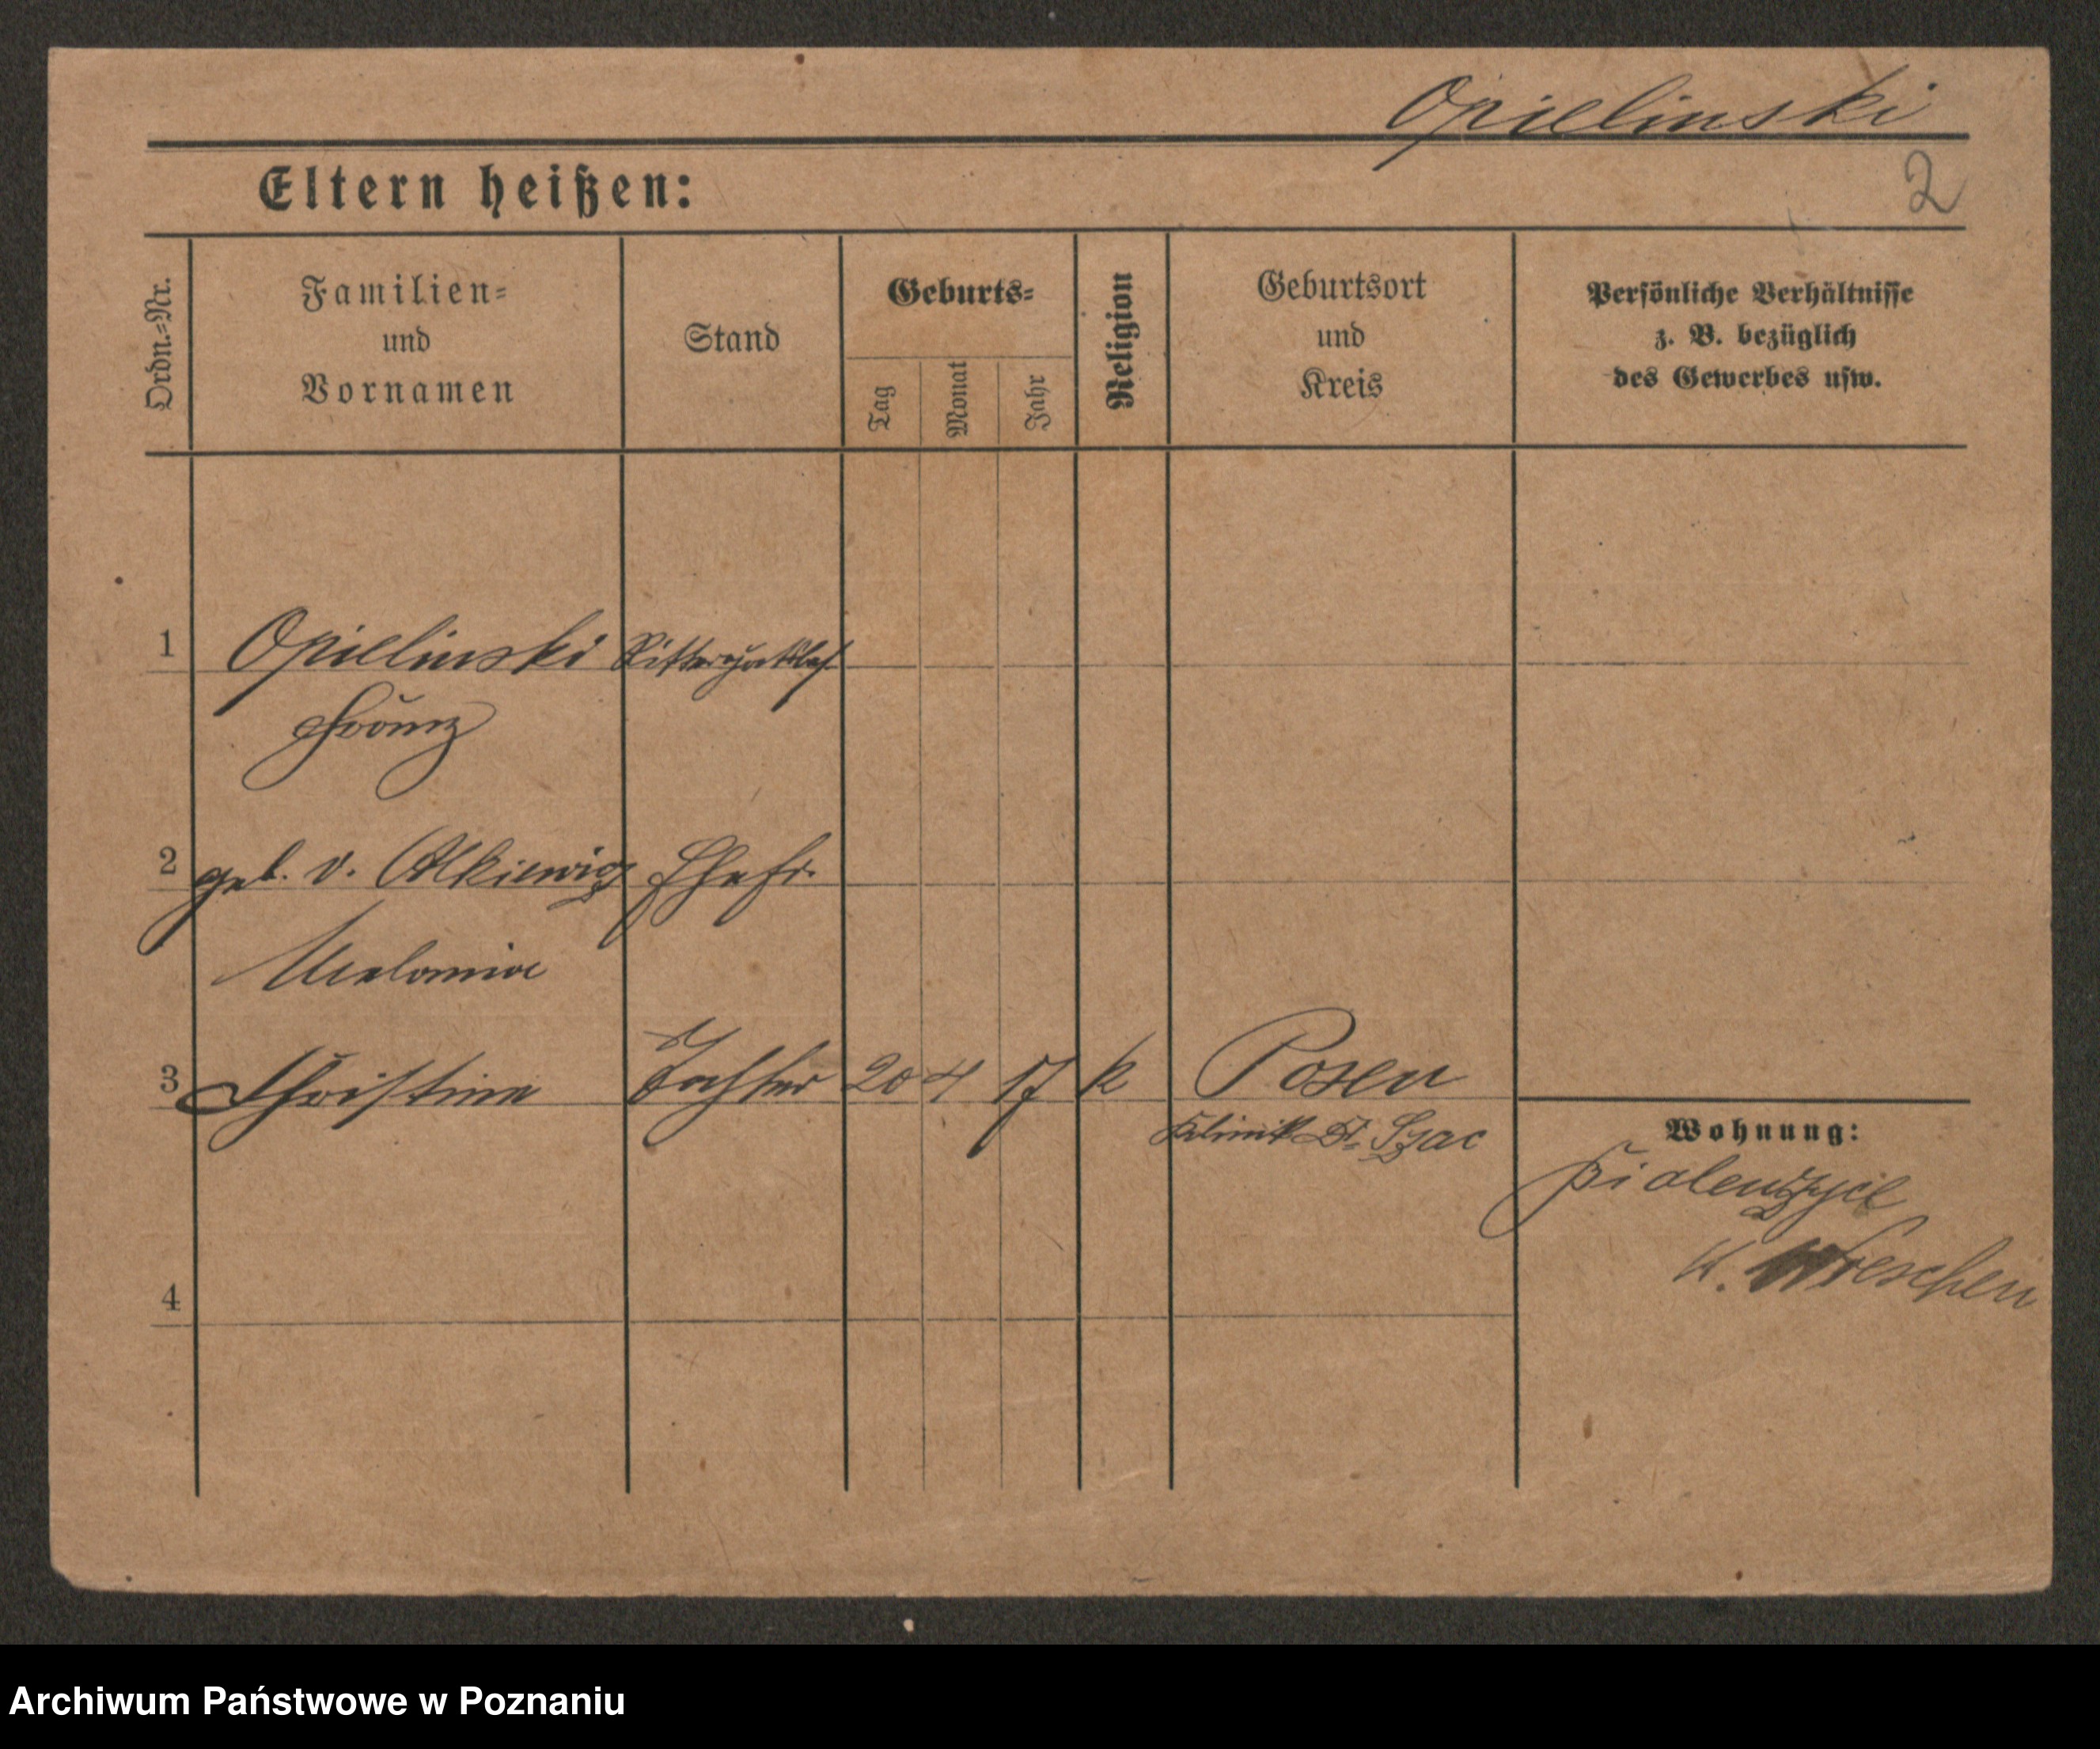 Opielinski
2
Eltern heißen:
Ordn.-Nr.
Familien-
und
Vornamen
Stand
Geburts-
Tag
Monat
Jahr
Religion
Geburtsort
und
Kreis
Persönliche Verhältnisse
z. B. bezüglich
des Gewerbes usw.
1 Opielinski Rittergutsbes.
Franz
2 geb. v. Alkiewicz Ehefr.
Melania
3 Christine Tochter 20 4 17 k Posen
Klinik Dr. Szac
Wohnung:
K. Wreschen
4
Archiwum Państwowe w Poznaniu